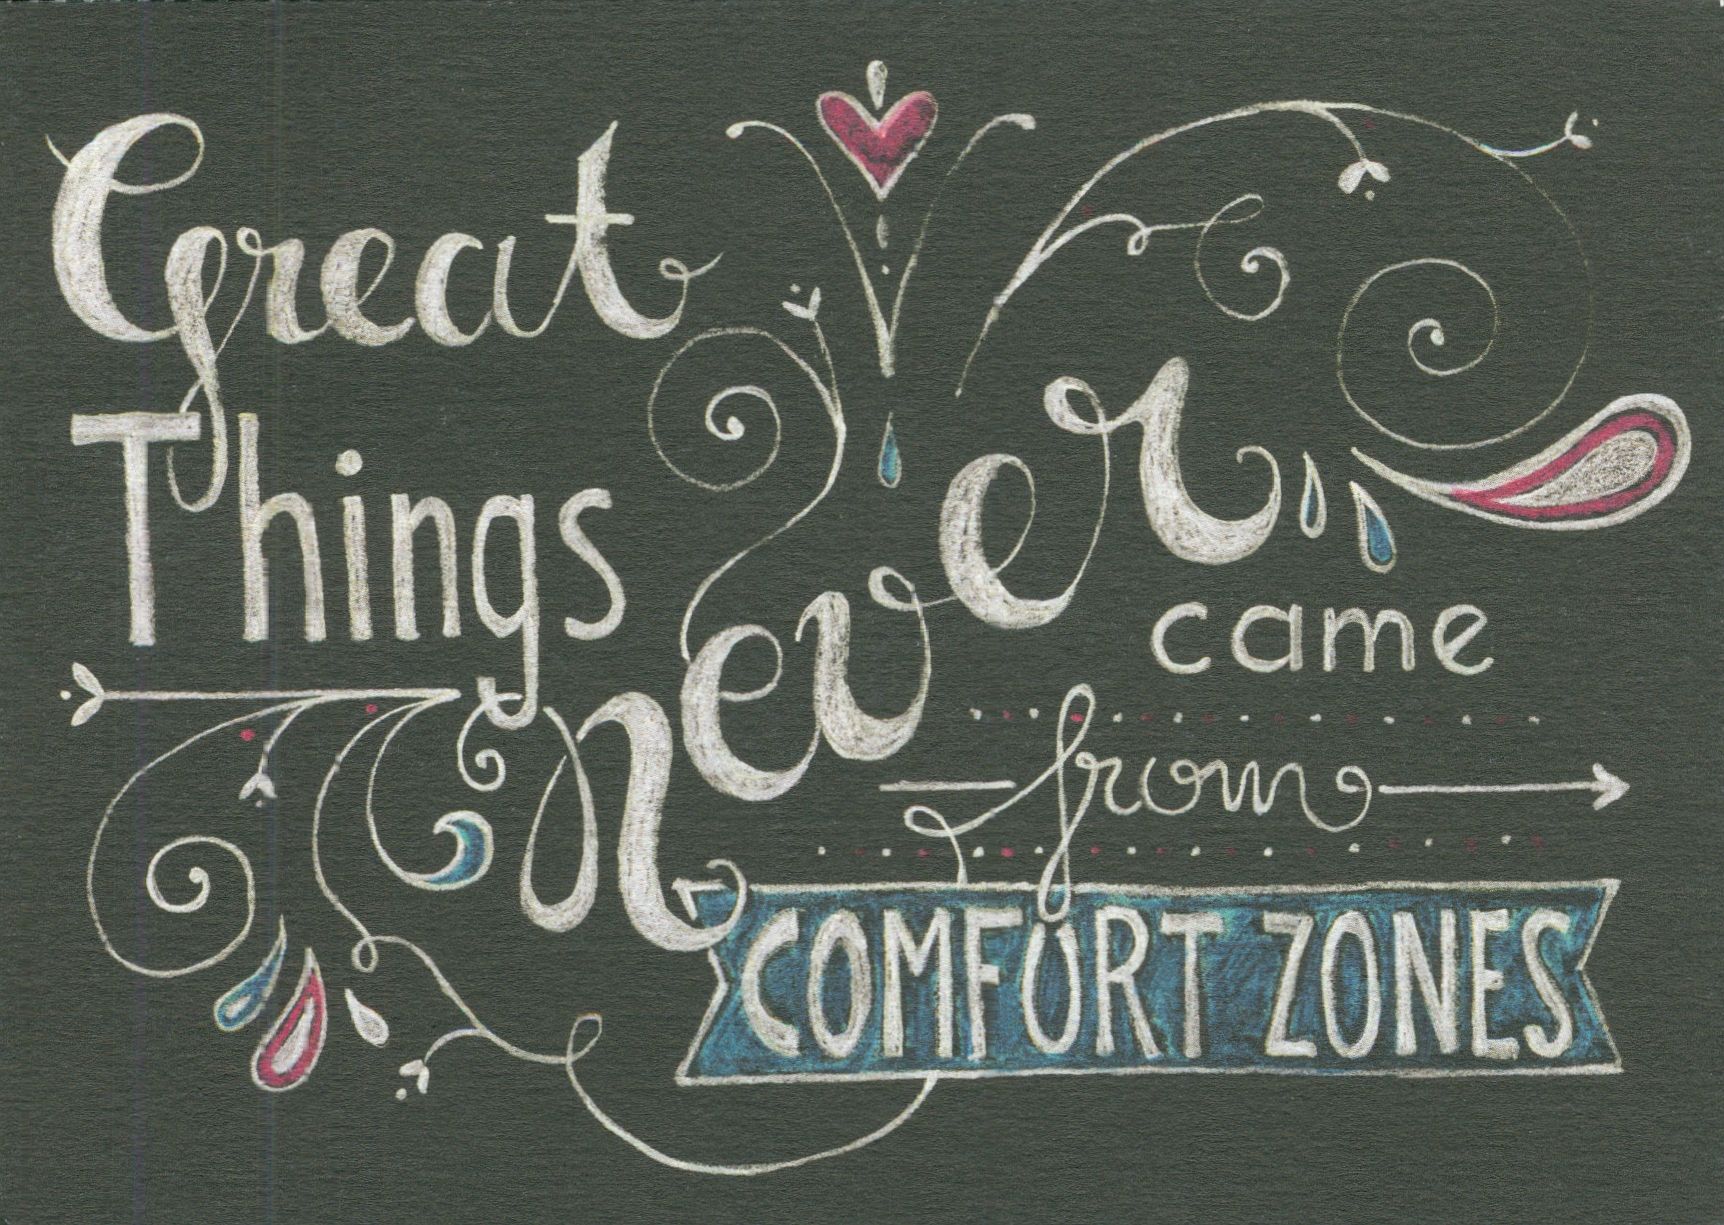 Great
Things
never
came
from
COMFORT ZONES